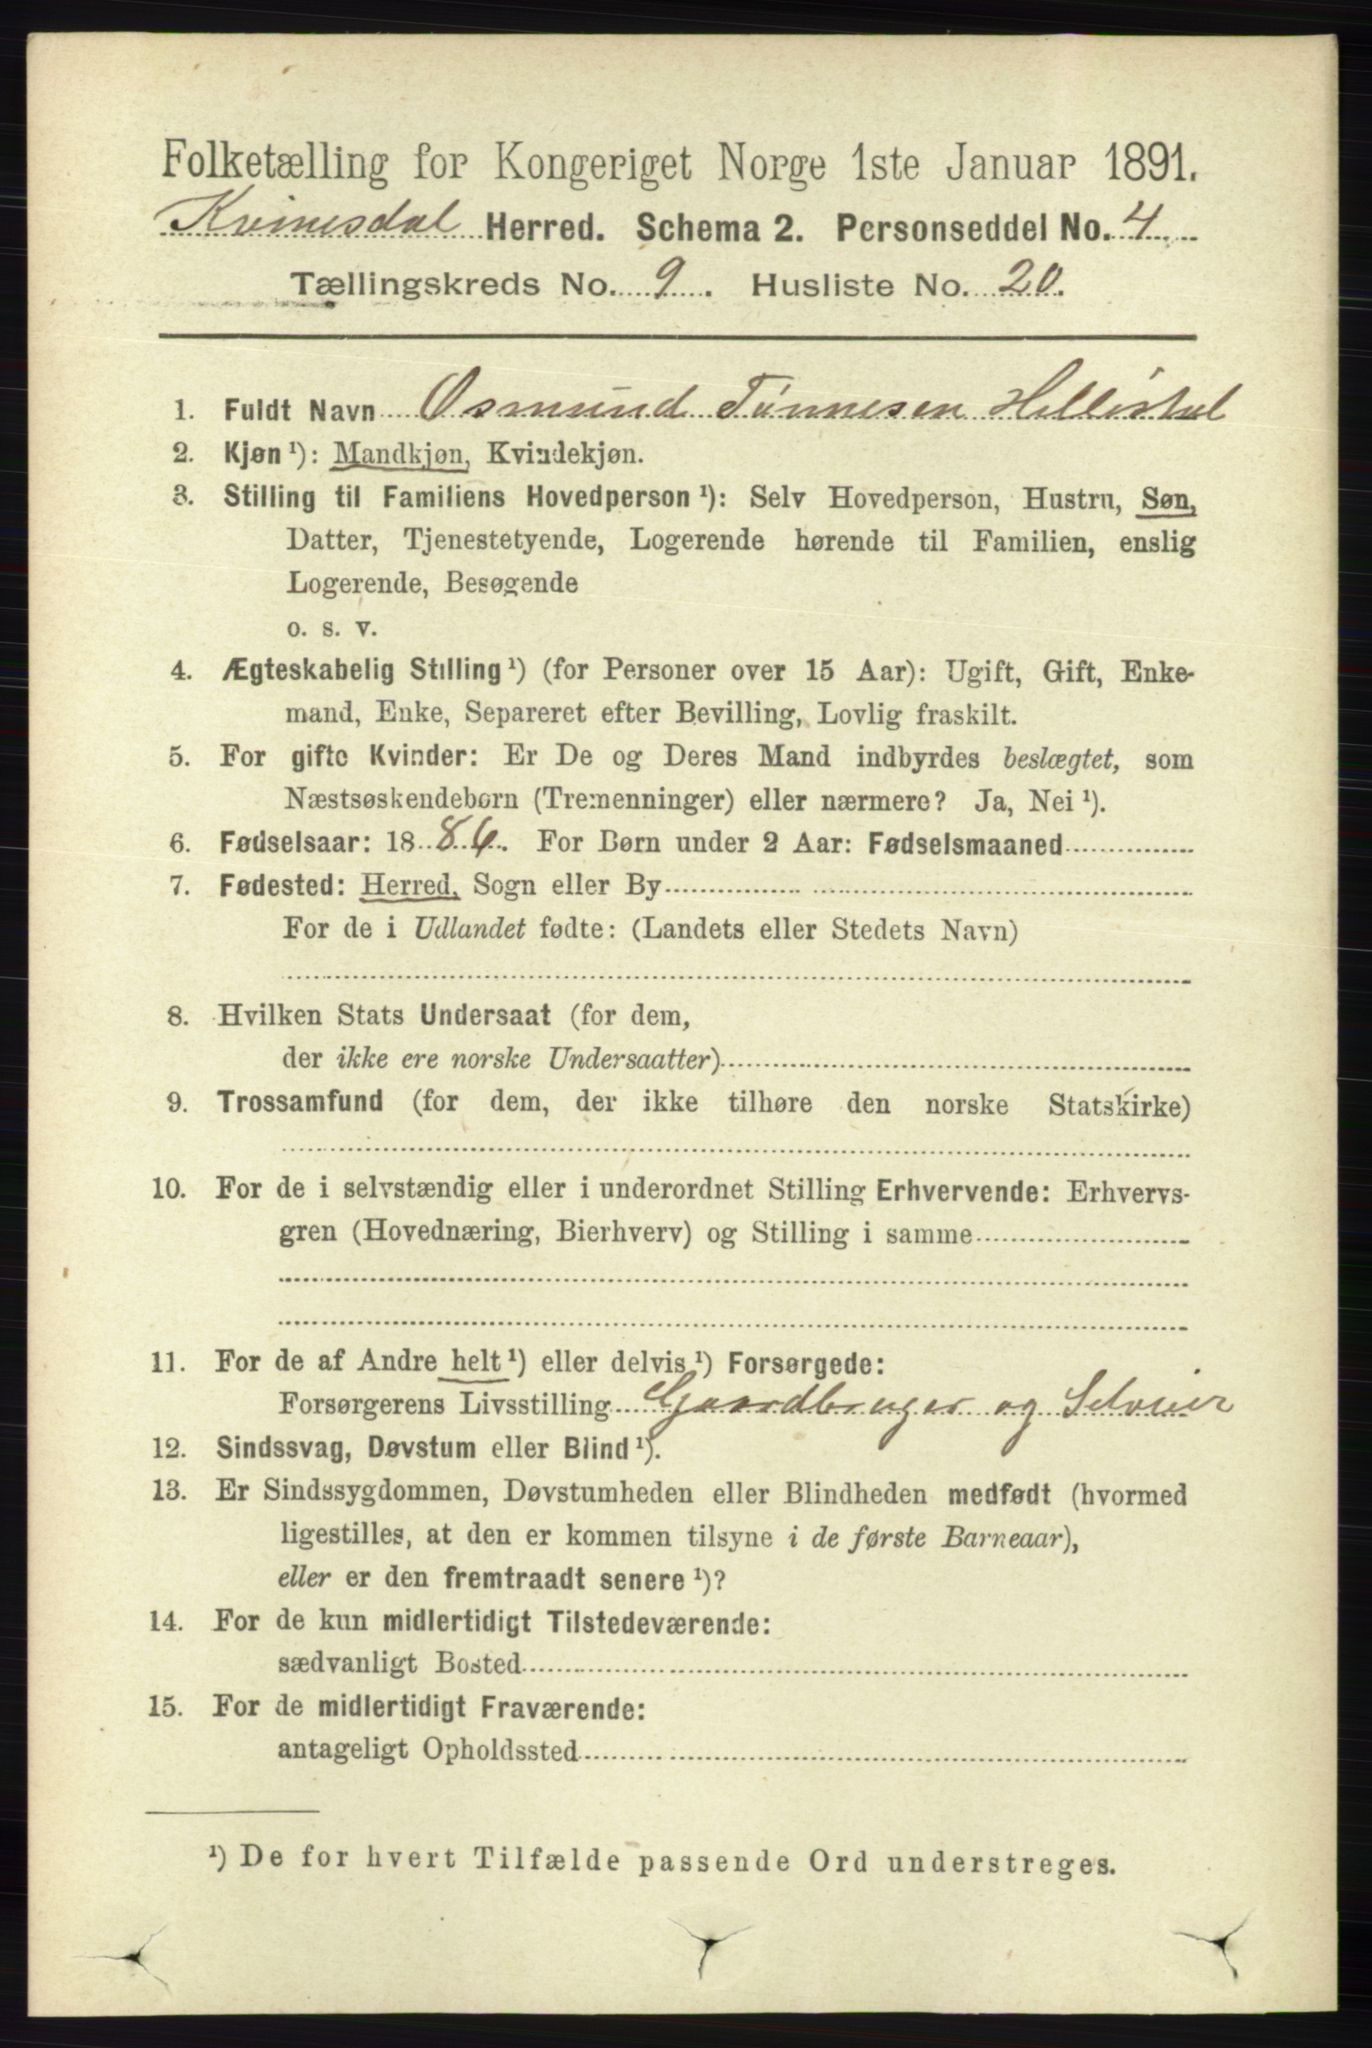 Folketælling for Kongeriget Norge 1ste Januar 1891.
Kvinesdal Herred. Schema 2. Personseddel No. 4
Tællingskreds No. 9. Husliste No. 20.
1. Fuldt Navn Osmund Tønnesen
2. Kjøn ¹): Mandkjøn, Kvindekjøn.
3. Stilling til Familiens Hovedperson ¹): Selv Hovedperson, Hustru, Søn,
Datter, Tjenestetyende, Logerende hørende til Familien, enslig
Logerende, Besøgende
o. s. v.
4. Ægteskabelig Stilling ¹) (for Personer over 15 Aar): Ugift, Gift, Enke-
mand, Enke, Separeret efter Bevilling, Lovlig fraskilt.
5. For gifte Kvinder: Er De og Deres Mand indbyrdes beslægtet, som
Næstsøskendebørn (Tremenninger) eller nærmere? Ja, Nei ¹).
6. Fødselsaar: 1886. For Børn under 2 Aar: Fødselsmaaned
7. Fødested: Herred, Sogn eller By
For de i Udlandet fødte: (Landets eller Stedets Navn)
8. Hvilken Stats Undersaat (for dem,
der ikke ere norske Undersaatter)
9. Trossamfund (for dem, der ikke tilhøre den norske Statskirke)
10. For de i selvstændig eller i underordnet Stilling Erhvervende: Erhvervs-
gren (Hovednæring, Bierhverv) og Stilling i samme
11. For de af Andre helt ¹) eller delvis ¹) Forsørgede:
Forsørgerens Livsstilling Gaardbruger og Selveier
12. Sindssvag, Døvstum eller Blind ¹).
13. Er Sindssygdommen, Døvstumheden eller Blindheden medfødt (hvormed
ligestilles, at den er kommen tilsyne i de første Barneaar),
eller er den fremtraadt senere ¹)?
14. For de kun midlertidigt Tilstedeværende:
sædvanligt Bosted
15. For de midlertidigt Fraværende:
antageligt Opholdssted
¹) De for hvert Tilfælde passende Ord understreges.